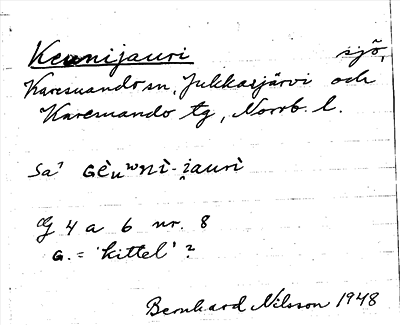 Keunijauri sjö,
Karesuando sn, Jukkasjärvi och
Karesuando tg, Norrb. l.
Sa'
4 a 6 nr. 8
G. = 'kittel' ?
Bernhard Nilsson 1948